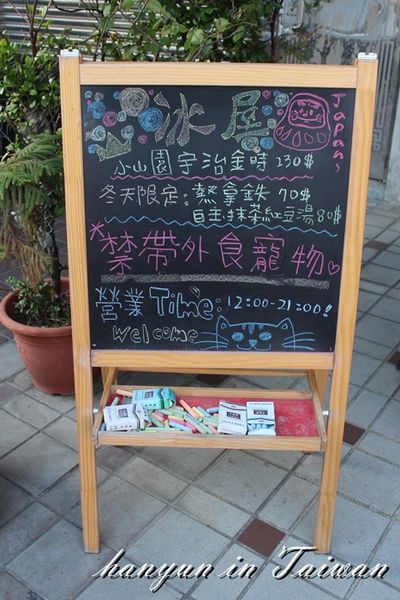 冰屋
Japan~
小山園宇治金時 230$
冬天限定：熱拿鉄 70$
自主抹茶紅豆湯 80$
禁帶外食寵物♡
營業Time：12:00-21:00!
Welcome
hanyun in Taiwan